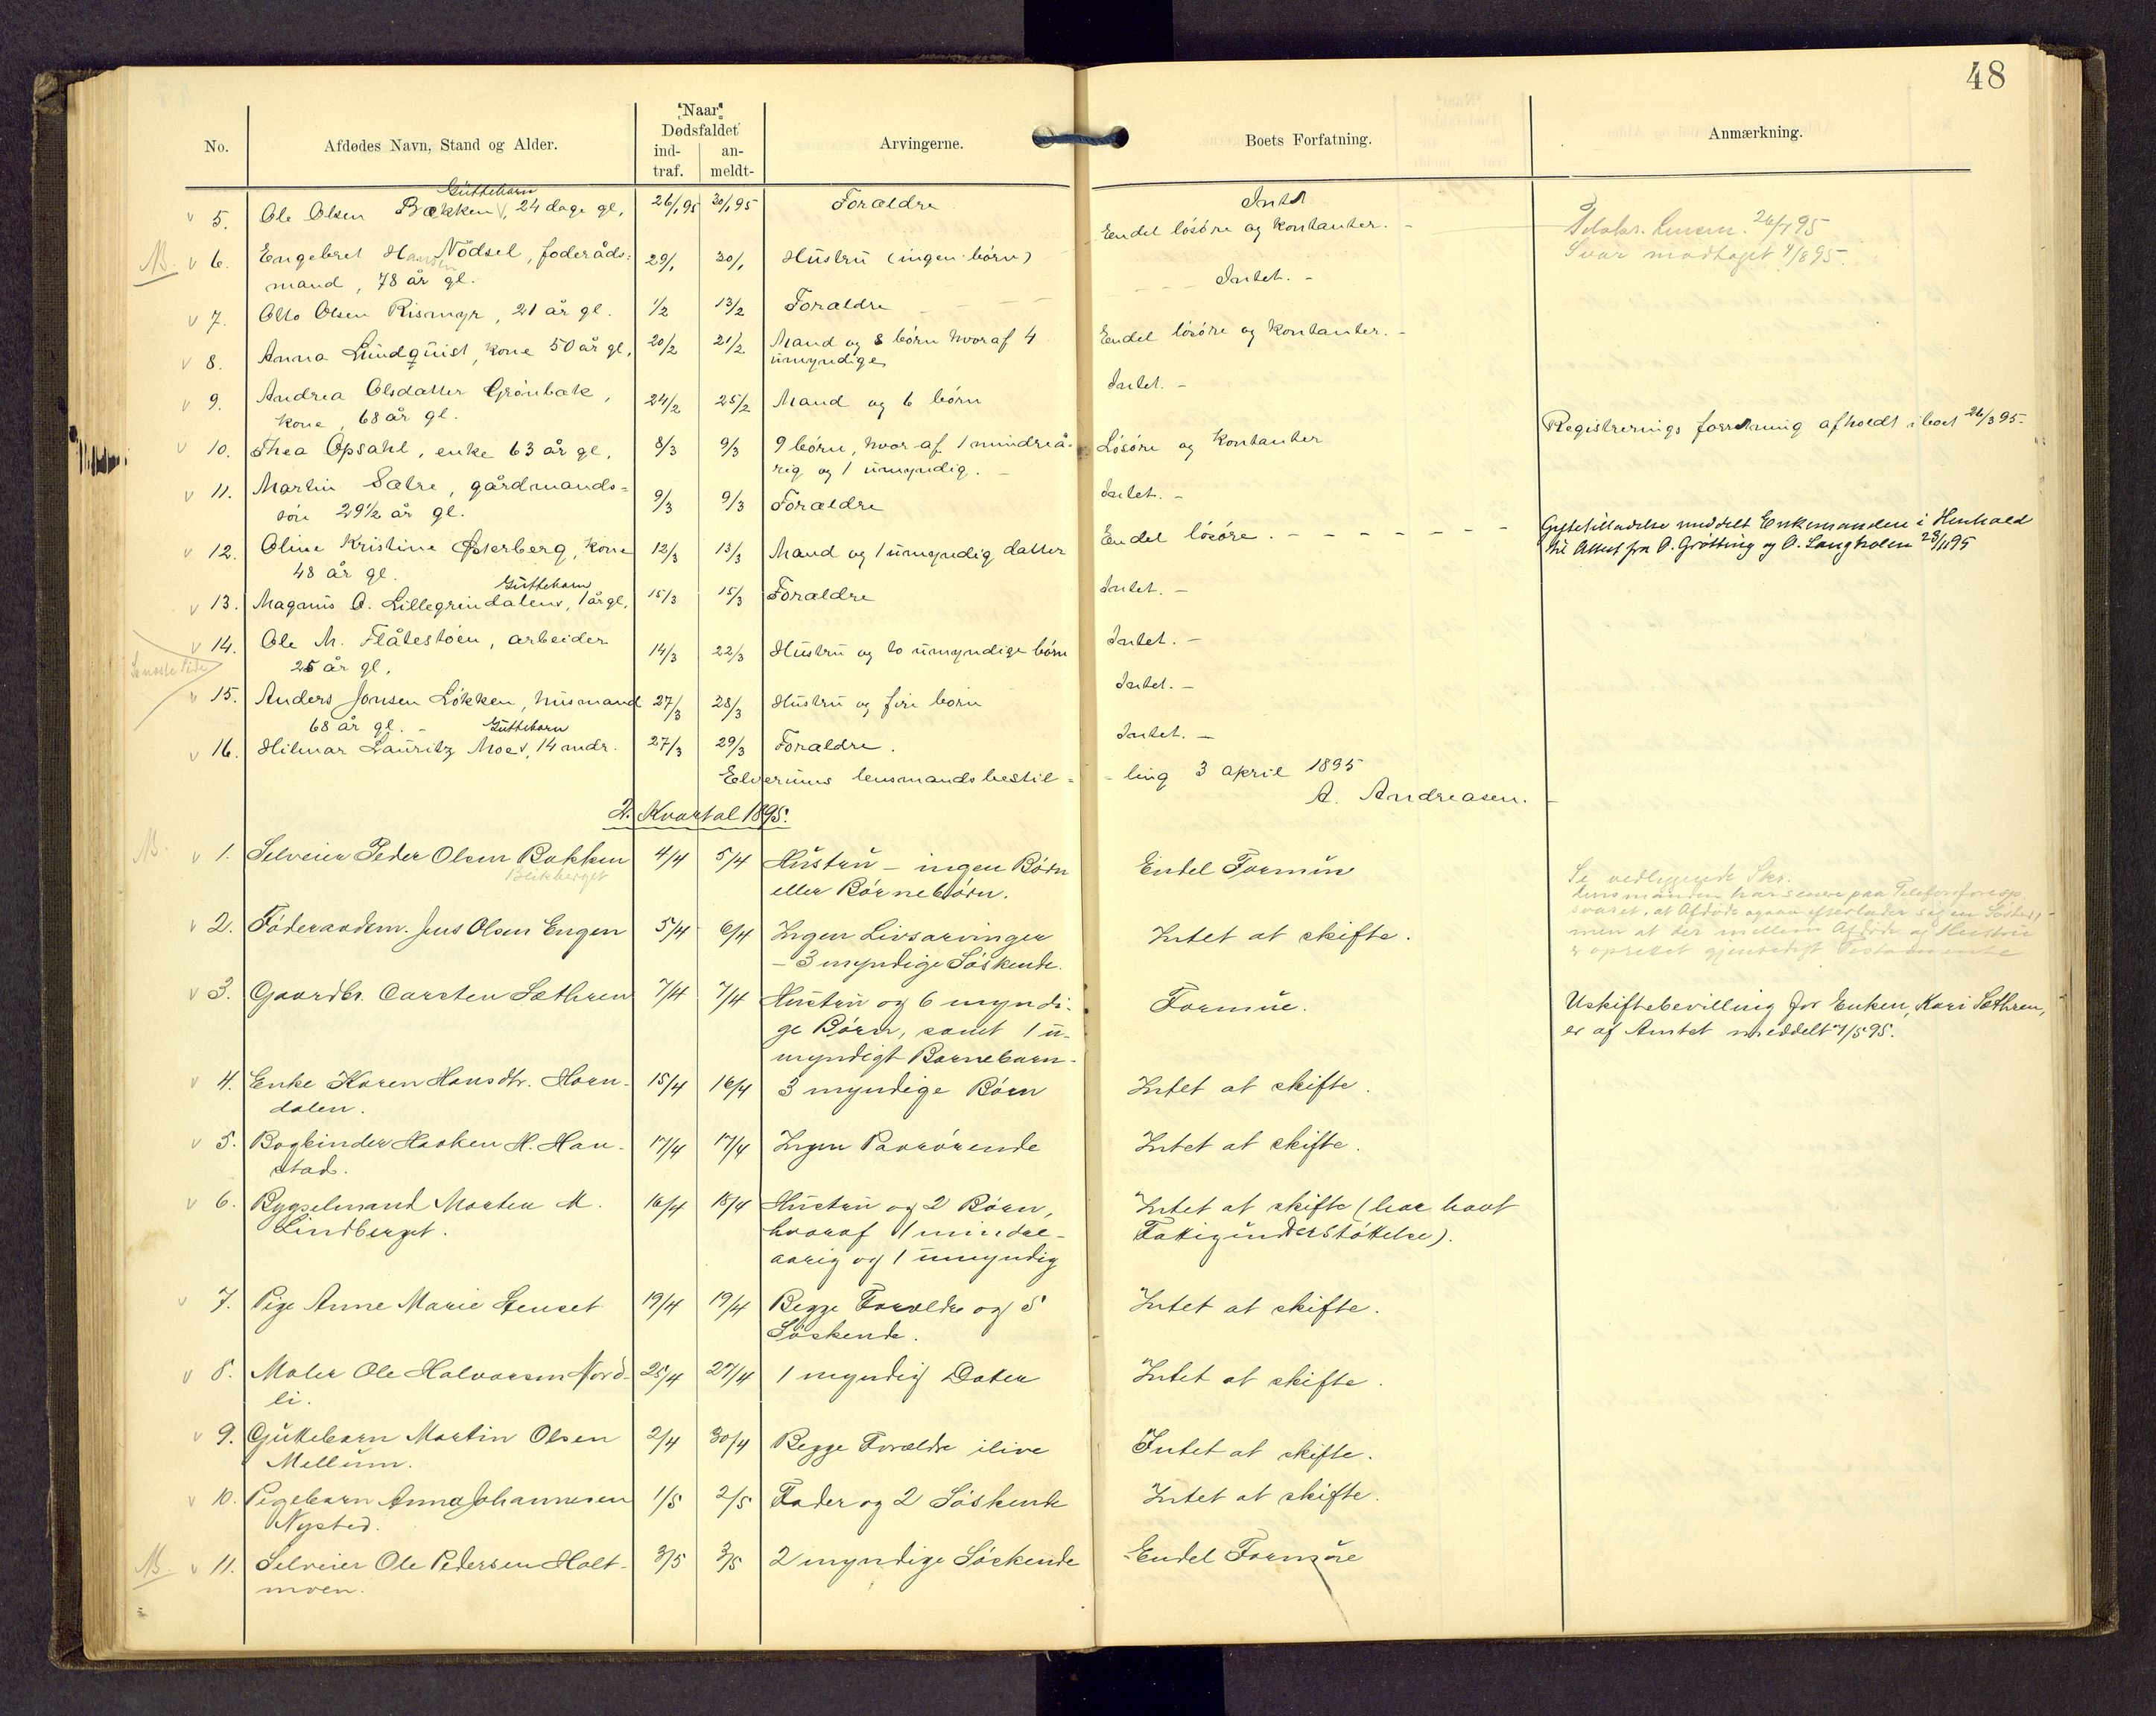 48
No.
Afdødes Navn, Stand og Alder.
Naar Dødsfaldet
ind-traf.
an-meldt-
Arvingerne.
Boets Forfatning.
Anmærkning.
Guttebarn
5. Ole Olsen Bækken, 24 dage gl. 26/1 95 30/1 95 Forældre Intet
6. Engebret Hansen Nödsel, föderåds- 29/1 30/1 Hustru (ingen börn) Endel lösöre og kontanter. 26/7 95
mand, 78 år gl. Svar modtaget 1/8 95.
7. Otto Olsen Rismyr, 21 år gl. 1/2 13/2 Forældre Intet.
8. Anna Lundquist, kone 50 år gl. 20/2 21/2 Mand og 8 börn hvoraf 4 Endel lösöre og kontanter.
umyndige
9. Andrea Olsdatter Grönbæk, 24/2 25/2 Mand og 6 börn Intet.
kone, 68 år gl.
10. Thea Opsahl, enke 63 år gl. 8/3 9/3 9 börn, hvoraf 1 mindreå- Lösöre og kontanter Registreringsforretning afholdt i boet 26/3 95.
rig og 1 umyndig.
11. Martin Sætre, gårdmands- 9/3 9/3 Forældre Intet.
sön 29 1/2 år gl.
12. Oline Kristine Østerberg, kone 12/3 13/3 Mand og 1 umyndig datter Endel lösöre. Giftetilladelse meddelt Enkemanden i Henhold
48 år gl. til Attest fra O. Grøtting og O. Langholen 23/11 95
Guttebarn
13. Magnus O. Lillegrindalen, 1 år gl. 15/3 15/3 Forældre Intet.
14. Ole M. Flåtestöen, arbeider 14/3 22/3 Hustru og to umyndige börn Intet.
25 år gl.
15. Anders Jonsen Lökken, husmand 27/3 28/3 Hustru og fire börn Intet.
68 år gl.
Guttebarn
16. Hilmar Lauritz Moe, 14 mdr. 27/3 29/3 Forældre. Intet.
Elverums lensmandsbestil- ling 3 april 1895
A. Andreasen.
2. Kvartal 1895.
1. Selveier Peder Olsen Bakken 4/4 5/4 Hustru – ingen Börn Endel Formue Se vedliggende Skr.
Blikberget eller Börnebörn. Lensmanden har senere paa Telefonforesp.
svaret, at Afdøde ogsaa efterlader sig en Søster,
2. Föderaadsm. Jens Olsen Engen 5/4 6/4 Ingen Livsarvinger Intet at skifte. men at der mellem Afdøde og Hustru
– 3 myndige Söskende. er oprettet gjensidigt Testamente
3. Gaardbr. Carsten Sæthren 7/4 7/4 Hustru og 6 myndi- Formue. Uskiftebevilling for Enken, Kari Sæthren,
ge Börn, samt 1 u- er af Amtet meddelt 7/5 95.
myndigt Barnebarn.
4. Enke Karen Hansdtr. Horn- 15/4 16/4 3 myndige Börn Intet at skifte.
dalen.
5. Bogbinder Haaken H. Han- 17/4 17/4 Ingen Paarörende Intet at skifte.
stad.
6. Bygselmand Morten M. 16/4 18/4 Hustru og 2 Börn, Intet at skifte (har havt
Lindberget. hvoraf 1 mindre- Fattigunderstöttelse).
aarig og 1 umyndig
7. Pige Anne Marie Stenset 19/4 19/4 Begge Forældre og 5 Intet at skifte.
Söskende.
8. Maler Ole Halvorsen Nord- 25/4 27/4 1 myndig Datter Intet at skifte.
li.
9. Guttebarn Martin Olsen 2/4 30/4 Begge Forældre ilive Intet at skifte.
Mellum.
10. Pigebarn Anna Johannesen 1/5 2/5 Fader og 2 Söskende Intet at skifte.
Nysted.
11. Selveier Ole Pedersen Holt- 3/5 3/5 2 myndige Söskende Endel Formue
moen.